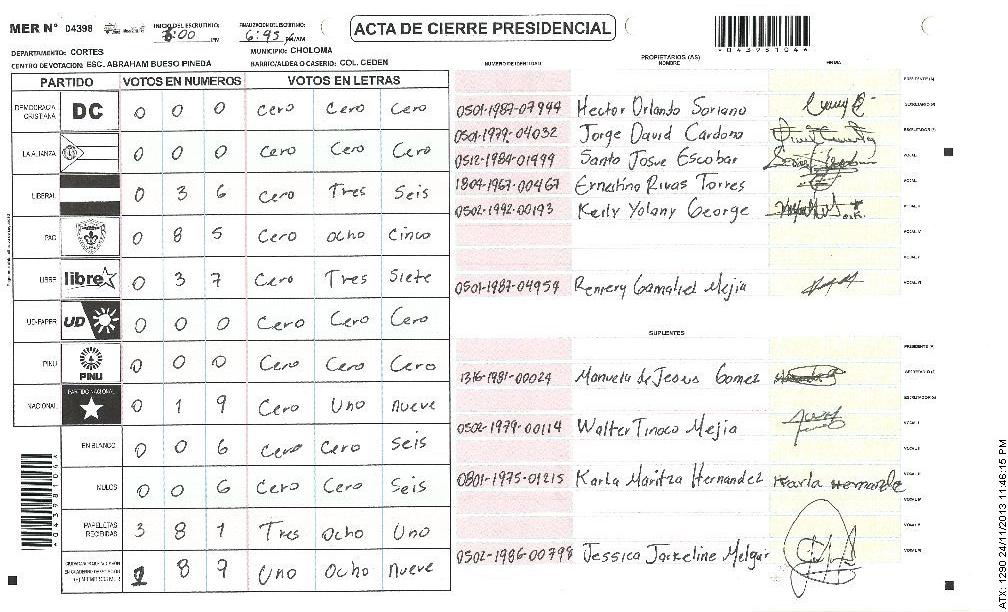 MER N° 04398
INICIO DEL ESCRUTINIO: :00 PM
FINALIZACION DEL ESCRUTINIO: 6:45 PM/AM
ACTA DE CIERRE PRESIDENCIAL
*04398104*
DEPARTAMENTO: CORTES
MUNICIPIO: CHOLOMA
CENTRO DE VOTACION: ESC. ABRAHAM BUESO PINEDA
BARRIO/ALDEA O CASERIO: COL. CEDEN
PARTIDO VOTOS EN NUMEROS VOTOS EN LETRAS
DEMOCRACIA CRISTIANA DC 0 0 0 Cero Cero Cero
LA ALIANZA 0 0 0 Cero Cero Cero
LIBERAL 0 3 6 Cero Tres Seis
PAC 0 8 5 Cero Ocho Cinco
LIBRE libre 0 3 7 Cero Tres Siete
UD-FAPER UD 0 0 0 Cero Cero Cero
PINU PINU 0 0 0 Cero Cero Cero
NACIONAL PARTIDO NACIONAL 0 1 9 Cero Uno nueve
EN BLANCO 0 0 6 Cero Cero seis
NULOS 0 0 6 Cero Cero Seis
PAPELETAS RECIBIDAS 3 8 1 Tres Ocho Uno
1 8 9 Uno Ocho nueve
*04398104*
NUMERO DE IDENTIDAD
PROPIETARIOS (AS)
NOMBRE
FIRMA
PRESIDENTE (A)
0501-1987-07944 Hector Orlando Soriano SECRETARIO (A)
0501-1979-04032 Jorge David Cardona ESCRUTADOR (A)
0512-1984-01999 Santo Josue Escobar VOCAL I
1804-1967-00467 Ernestino Rivas Torres VOCAL II
0502-1992-00193 Kerly Yolany George VOCAL III
VOCAL IV
VOCAL V
0501-1987-04954 Remery Gamaliel Mejia VOCAL VI
SUPLENTES
PRESIDENTE (A)
1316-1981-00024 Manuela de Jesus Gomez SECRETARIO (A)
ESCRUTADOR (A)
0502-1979-00114 Walter Tinoco Mejia VOCAL I
VOCAL II
0801-1975-01215 Karla Maritza Hernandez Karla Hernandez VOCAL III
VOCAL IV
VOCAL V
0502-1986-00798 Jessica Jackeline Melgar VOCAL VI
ATX: 1290 24/11/2013 11:46:15 PM